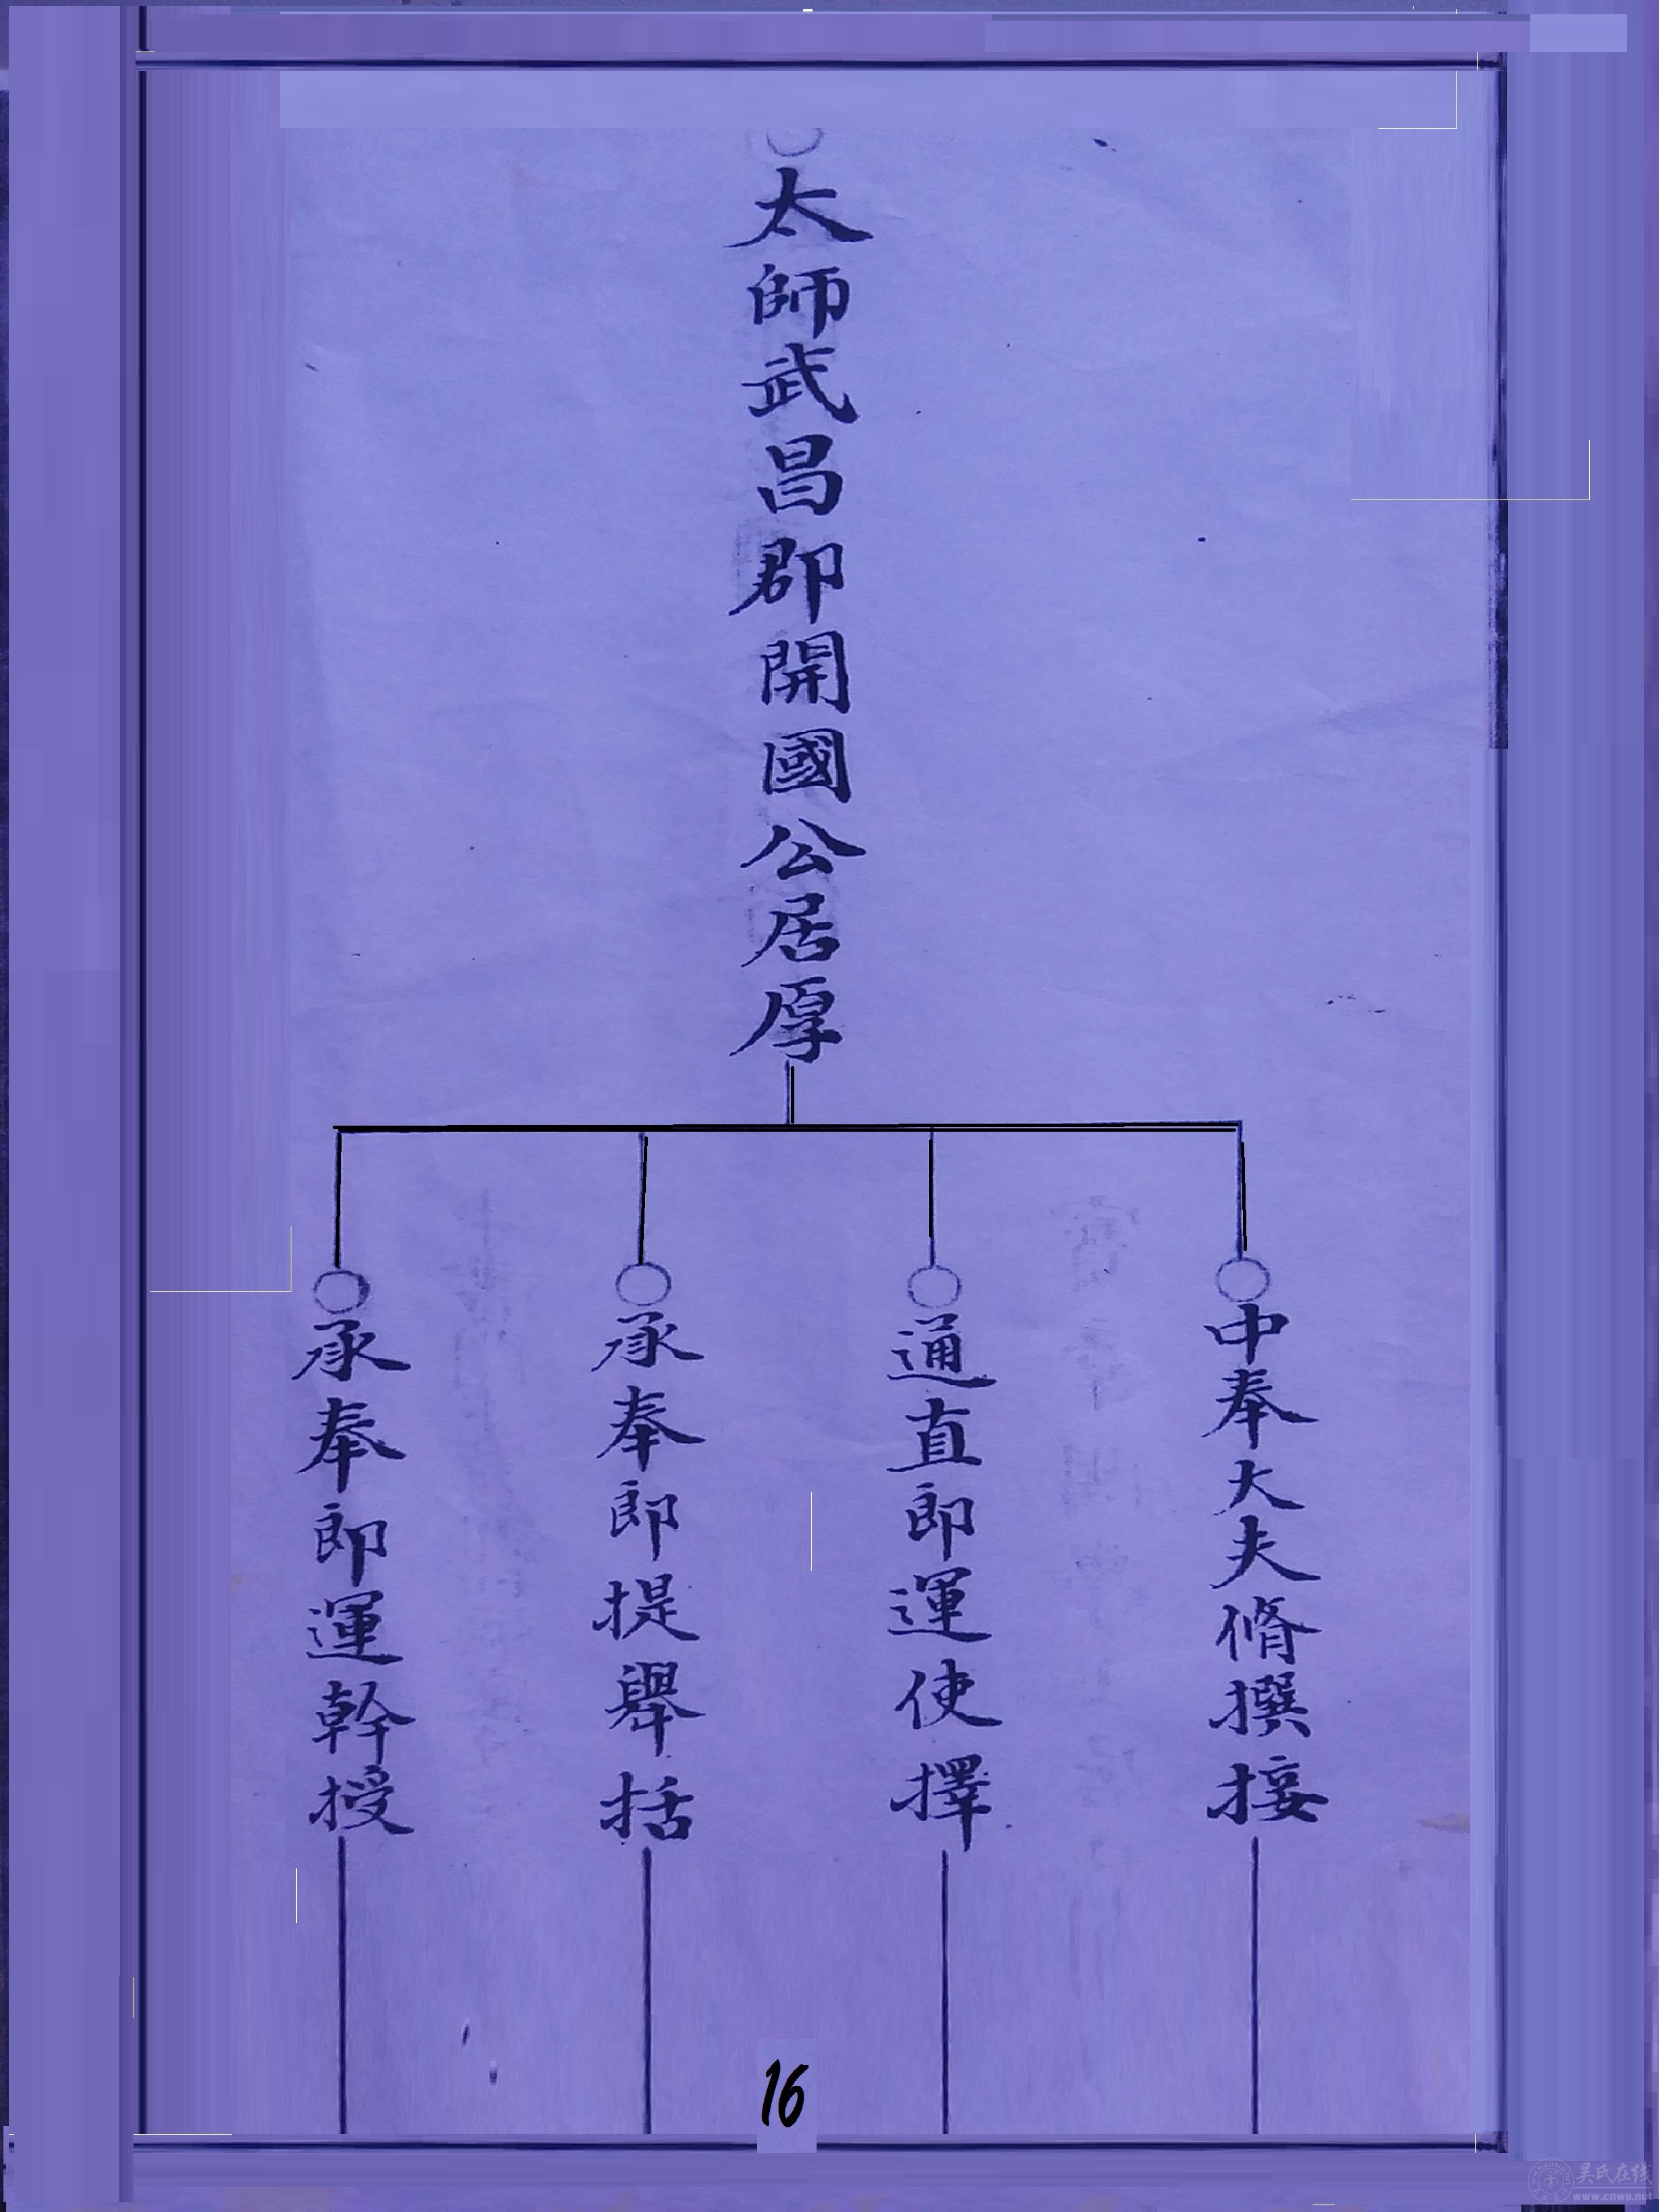 太師武昌郡開國公居厚
中奉大夫脩撰接
通直郎運使擇
承奉郎提舉括
承奉郎運幹授
16
吴氏在线
www.cnwu.net